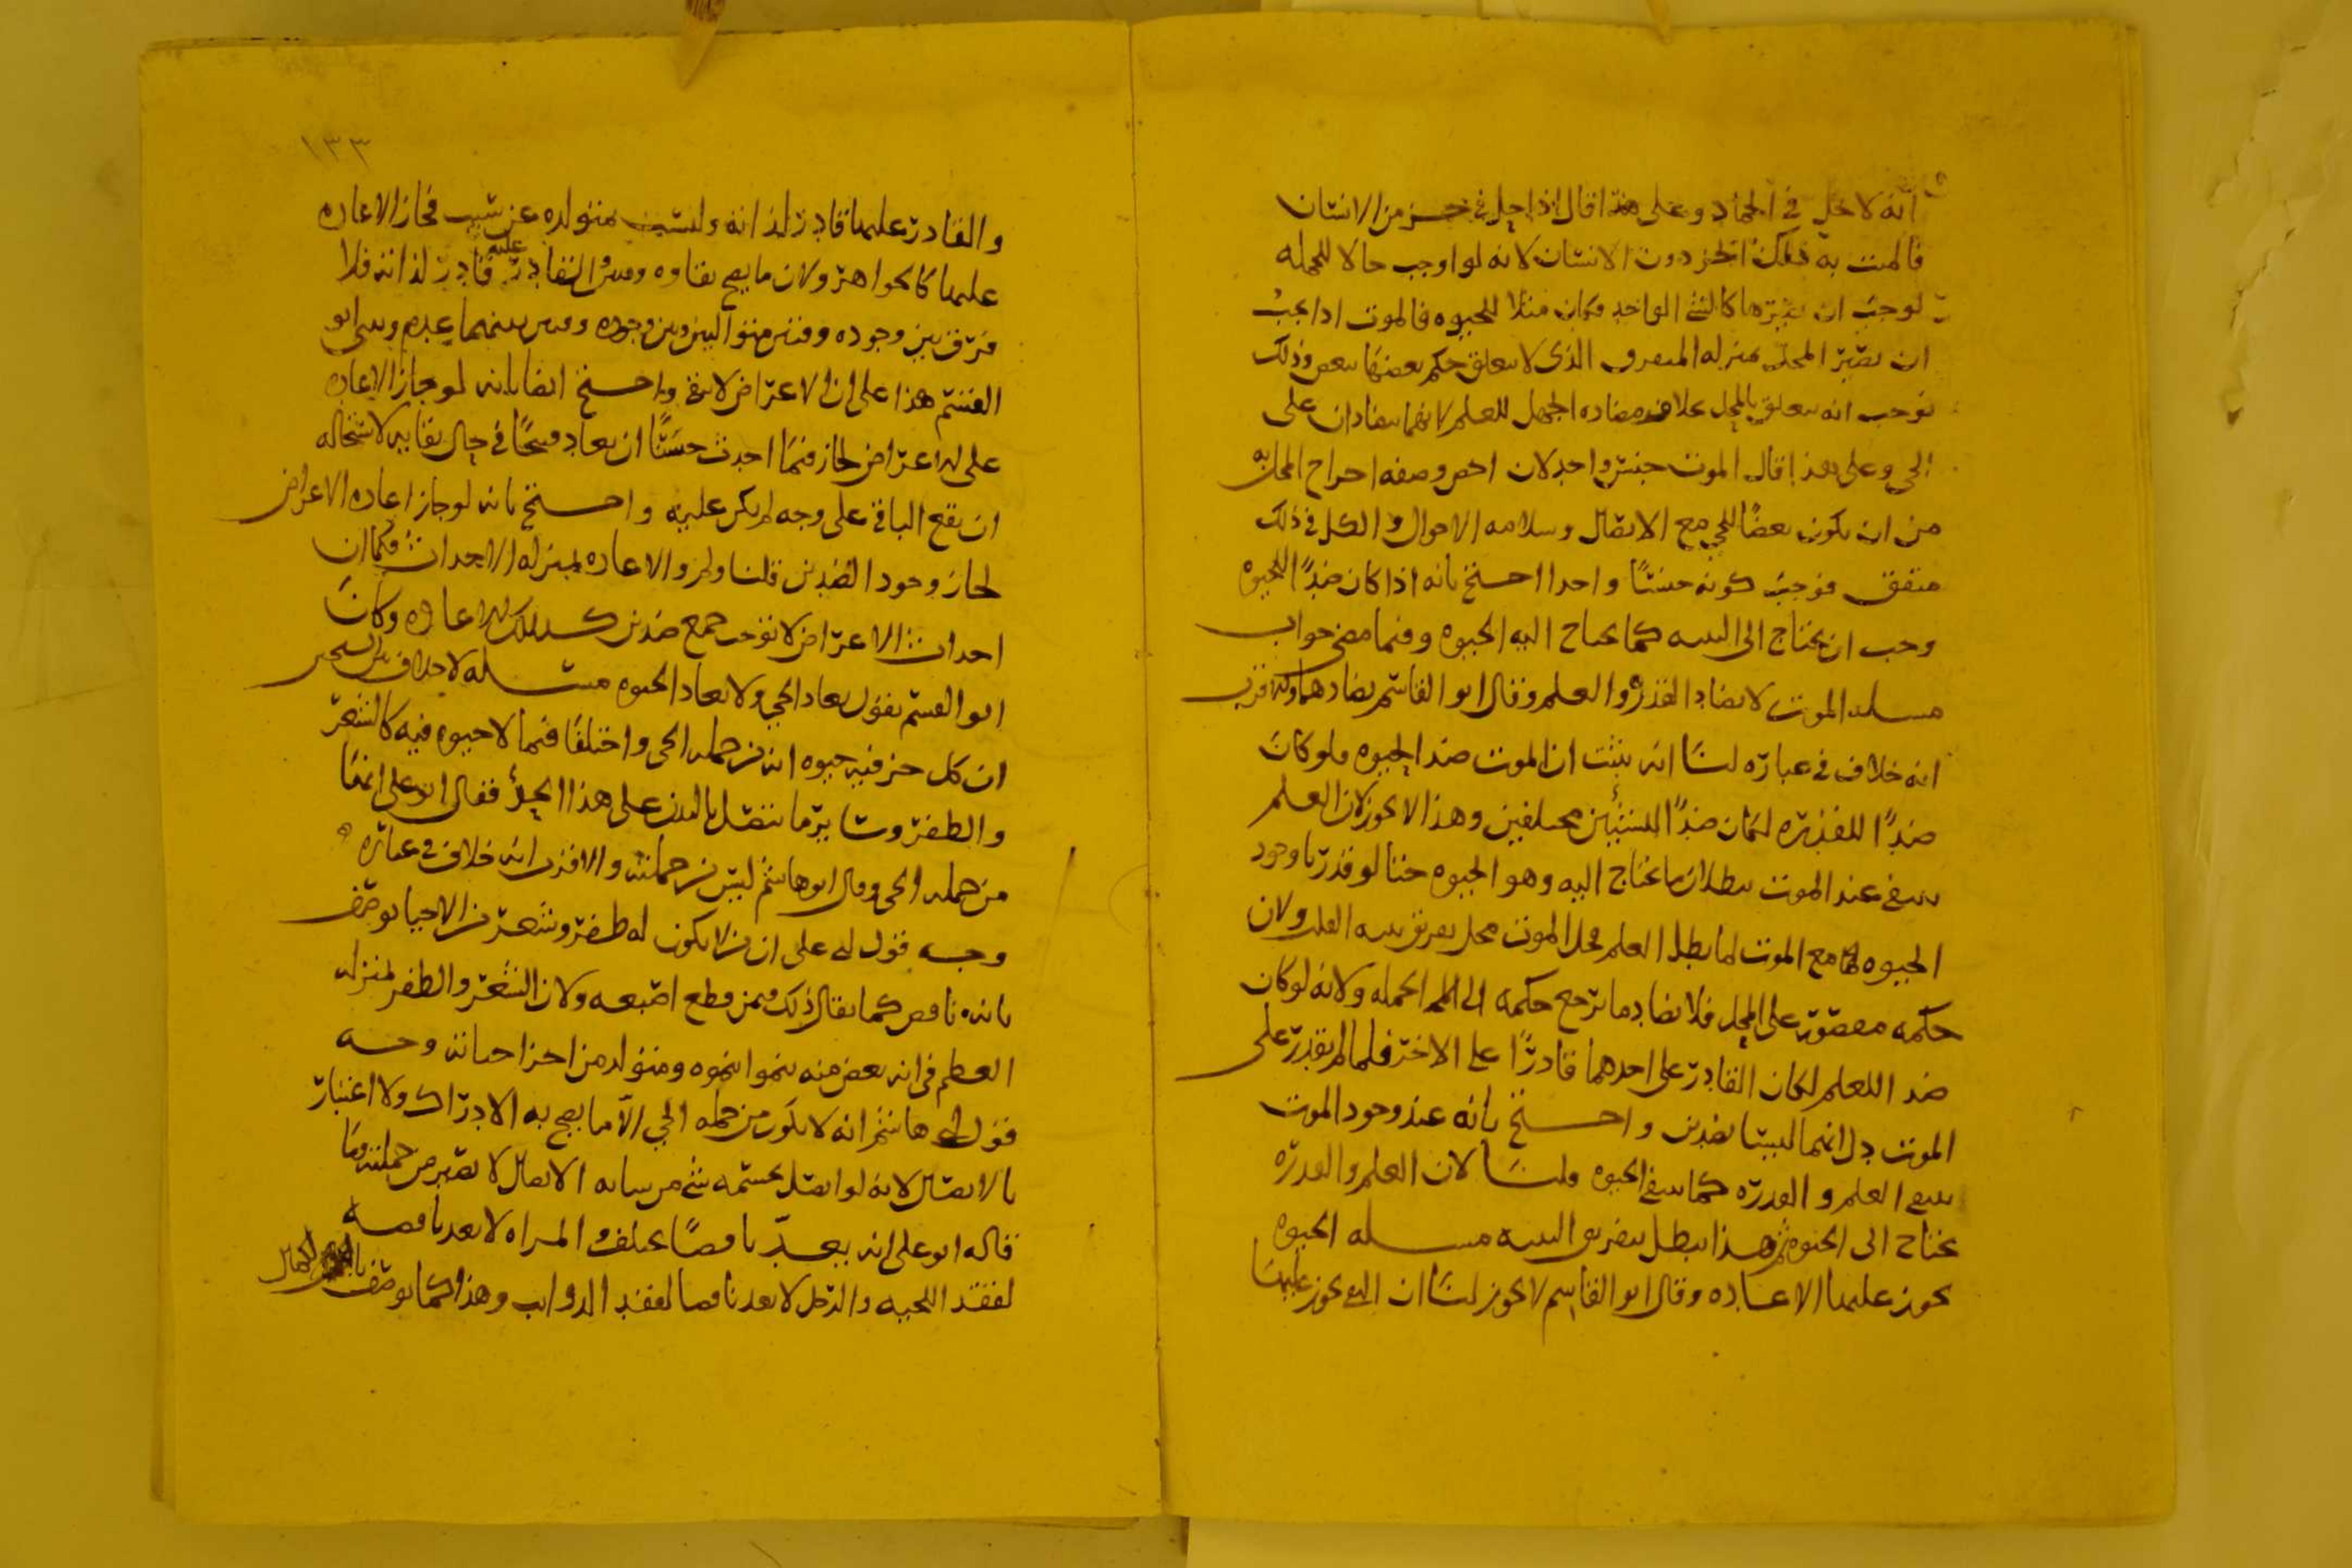 انه لا يحل في الجماد وعلى هذا قال اذا حل في جزء من الانسان
فالميت به ذلك الجزء دون الانسان لانه لو اوجب حالا للجمله
لوجب ان يصيرها كالشي الواحد وكان مثلا للحيوه فالموت اذا يجب
ان يصير المحل بمنزله المتفرق الذي لا يتعلق حكم بعضها ببعض وذلك
يوجب انه يتعلق بالمحل بخلاف مضاده الجهل للعلم لانهما يتضادان على
الحي وعلى هذا قال الموت جنس واحد لان اخص وصفه اخراج المحل به
من ان يكون بعضا للحي مع الاتصال وسلامه الاحوال والكل في ذلك
متفق فوجب كونه جنسا واحدا احتج بانه اذا كان ضدا للحيوه
وجب ان يحتاج الى البنيه كما يحتاج اليه الحيوه وفيما مضى جواب
مسله الموت لا يضاد القدره والعلم وقال ابو القاسم يضادهما والاقرب
انه خلاف في عباره لنا انه يثبت ان الموت ضد الحيوه ولو كان
ضدا للقدره لكان ضدا للشيئين مختلفين وهذا لا يجوز لان العلم
ينتفي عند الموت لبطلان ما يحتاج اليه وهو الحيوه حتى لو قدرنا وجود
الحيوه مع الموت لما بطل العلم فحل الموت محل تفريق بنيه القلب ولان
حكمه مقصور على المحل فلا يضاد ما يرجع حكمه الى الجمله ولانه لو كان
ضد اللعلم لكان القادر على احدهما قادرا على الاخر فلما لم يقدر على
الموت دل انهما ليسا بضدين واحتج بانه عند وجود الموت
ينتفي العلم والقدره كما ينتفي الحيوه قلنا لان العلم والقدره
يحتاج الى الحيوه ثم هذا يبطل بتفريق البنيه مسله الحيوه
يجوز عليها الاعاده وقال ابو القاسم لا يجوز لنا ان البقى يجوز عليها
١٣٣
والقادر عليها قادر لذاته وليست متولده عن سبب فجاز الاعاده
عليها كالجواهر ولان ما يصح بقاوه ومن القادر عليه قادر لذاته فلا
فرق بين وجوده وقتين متواليين وبين وجوده وقتين بينهما عدم وبنى ابو
القسم هذا على ان الاعراض لا تبقى واحتج ايضا بانه لو جاز الاعاده
على الاعراض لجاز فيما احدث حسنا ان يعاد قبيحا في حال بقايه لاستحاله
ان يقع الباقي على وجه لم يكن عليه واحتج بانه لو جاز اعاده الاعراض
لجاز وجود الضدين قلنا ولم والاعاده بمنزله الاحداث فكما ان
احداث الاعراض لا توجب جمع ضدين كذلك الاعاده وكان
ابو القسم يقول يعاد الحي ولا يعاد الحيوه مسله لا خلاف بين الشيخين
ان كل جزء فيه حيوه انه من جمله الحي واختلفا فيما لا حيوه فيه كالشعر
والظفر وساير ما يتصل بالبدن على هذا الحد فقال ابو على انها
من جمله الحي وقال ابو هاشم ليس من جملته والاقرب انه خلاف في عباره
وجه قول ابي على ان من لا يكون له ظفر وشعر من الاحيا يوصف
بانه ناقص كما يقال ذلك فيمن قطع اصبعه ولان الشعر والظفر بمنزله
العظم في انه بعض منه ينموا بنموه ومتولد من اجزا حياته وجه
قول ابي هاشم انه لا يكون من جمله الحي الا ما يصح به الادراك ولا اعتبار
بالاتصال لانه لو اتصل بجسمه شي من ساير الاتصال لا يصير من جملته وما
قاله ابو على انه يعد ناقصا يختلف والمراه لا تعد ناقصه
لفقد اللحيه والرجل لا يعد ناقصا لفقد الذوايب وهذا كما يوصف